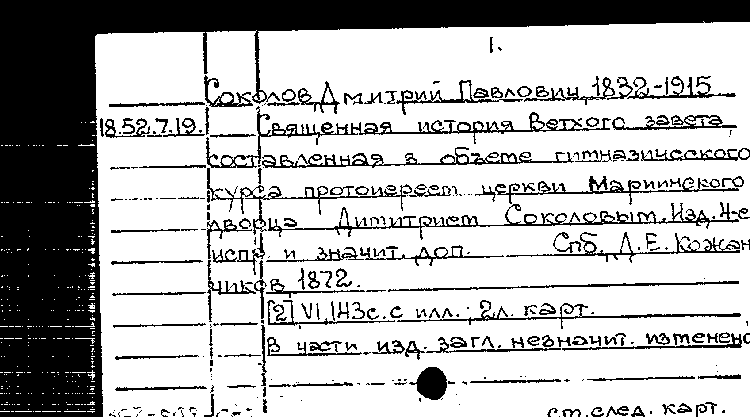 1.
Соколов, Дмитрий Павлович, 1832-1915
18.52.7.19. Священная история Ветхого завета,
составленная в объеме гимназического
курса протоиереем церкви Мариинского
дворца Димитрием Соколовым. Изд. 4-е
испр. и значит. доп. Спб., Д.Е. Кожан
чиков, 1872.
[2] VI, 143с. с илл.; 2л. карт.
В части изд. загл. незначит. изменено
см. след. карт.